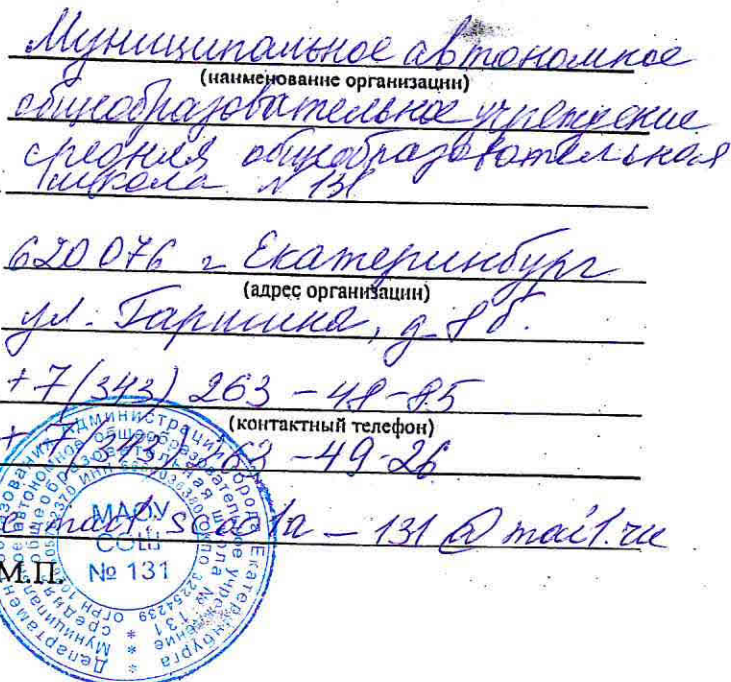 Муниципальное автономное
(наименование организации)
общеобразовательное учреждение
средняя общеобразовательная
школа №131
620076 г Екатеринбург
(адрес организации)
ул. Гаршина, д. 8 б.
+7(343) 263-48-85
(контактный телефон)
+7(343)263-49-26
e mail scoola-131@mail.ru
М.П.
МАОУ
СОШ
№ 131